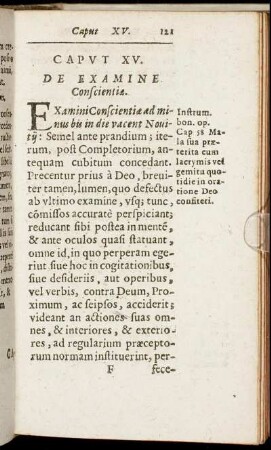 Caput XV. 121
CAPVT XV.
DE EXAMINE
Conscientiæ.
EXamini Conscientiæ ad mi-
nus bis in die vacent Noui-
tij: Semel ante prandium; ite-
rum, post Completorium, an-
tequam cubitum concedant.
Precentur prius à Deo, breui-
ter tamen, lumen, quo defectus
ab vltimo examine, vsq; tunc,
cōmissos accuratè perspiciant;
reducant sibi postea in mentē,
& ante oculos quasi statuant,
omne id, in quo perperam ege-
riut. siue hoc in cogitationibus,
siue desideriis, aut operibus,
vel verbis, contra Deum, Pro-
ximum, ac seipsos, acciderit;
videant an actiones suas om-
nes, & interiores, & exterio-
res, ad regularium præcepto-
rum normam instituerint, per-
F fece-
Instrum.
bon. op.
Cap 58 Ma-
la sua præ-
terita cum
lacrymis vel
gemitu quo-
tidie in ora-
tione Deo
confiteri.